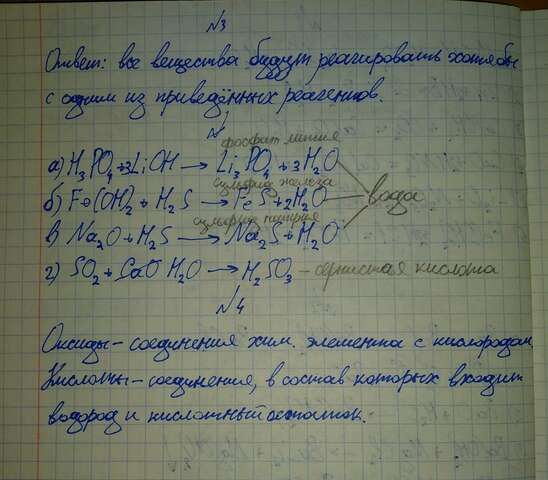 №3
Ответ: все вещества будут реагировать хотя бы
с одним из приведённых реагентов.
№
фосфат лития
а) H₃PO₄+3LiOH → Li₃PO₄+3H₂O
сульфид железа
б) Fe(OH)₂ + H₂S → FeS+2H₂O
вода
сульфид натрия
в) Na₂O+H₂S → Na₂S+H₂O
г) SO₂+CaO H₂O → H₂SO₃ – сернистая кислота
№4
Оксиды – соединения хим. элемента с кислородом
Кислоты – соединения, в состав которых входит
водород и кислотный остаток.